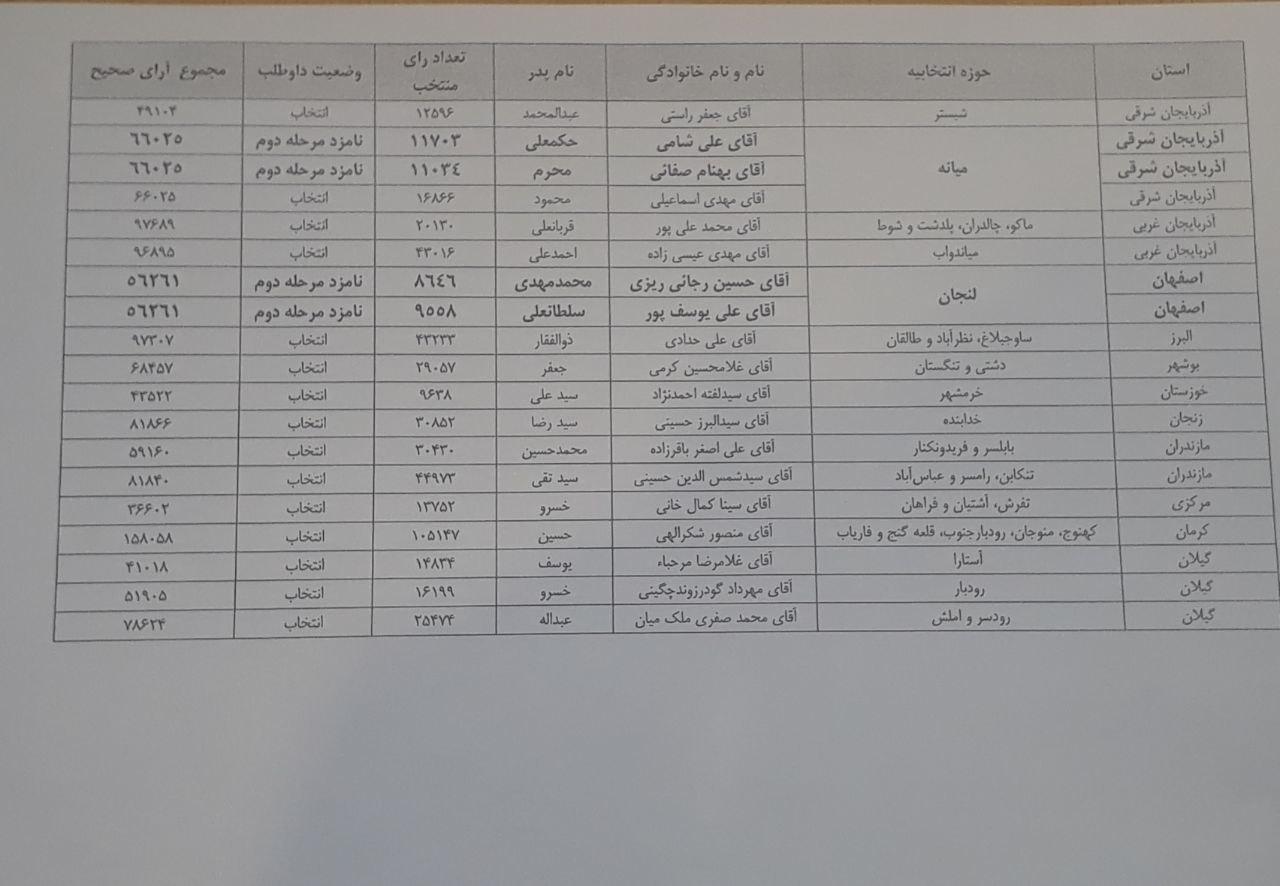 استان حوزه انتخابیه نام و نام خانوادگی نام پدر تعداد رای منتخب وضعیت داوطلب مجموع آرای صحیح
آذربایجان شرقی شبستر آقای جعفر راستی عبدالمحمد ۱۲۵۹۶ انتخاب ۴۹۱۰۴
آذربایجان شرقی میانه آقای علی شامی حکمعلی ۱۱۷۰۳ نامزد مرحله دوم ۶۶۰۲۵
آذربایجان شرقی آقای بهنام صفائی محرم ۱۱۰۳٤ نامزد مرحله دوم ۶۶۰۲۵
آذربایجان شرقی آقای مهدی اسماعیلی محمود ۱۶۸۶۶ انتخاب ۶۶۰۲۵
آذربایجان غربی ماکو، چالدران، پلدشت و شوط آقای محمد علی پور قربانعلی ۲۰۱۳۰ انتخاب ۹۷۶۸۹
آذربایجان غربی میاندواب آقای مهدی عیسی زاده احمدعلی ۴۳۰۱۶ انتخاب ۹۶۸۹۵
اصفهان لنجان آقای حسین رجائی ریزی محمدمهدی ۸٦٤٦ نامزد مرحله دوم ٥٦٢٦١
اصفهان آقای علی یوسف پور سلطانعلی ۹۵۵۸ نامزد مرحله دوم ٥٦٢٦١
البرز ساوجبلاغ، نظرآباد و طالقان آقای علی حدادی ذوالفقار ۴۳۲۳۳ انتخاب ۹۷۳۰۷
بوشهر دشتی و تنگستان آقای غلامحسین کرمی جعفر ۲۹۰۵۷ انتخاب ۶۸۴۵۷
خوزستان خرمشهر آقای سیدلفته احمدنژاد سید علی ۹۶۳۸ انتخاب ۴۳۵۲۲
زنجان خدابنده آقای سیدالبرز حسینی سید رضا ۳۰۸۵۲ انتخاب ۸۱۸۶۶
مازندران بابلسر و فریدونکنار آقای علی اصغر باقرزاده محمدحسین ۳۰۴۳۰ انتخاب ۵۹۱۶۰
مازندران تنکابن، رامسر و عباس‌آباد آقای سیدشمس الدین حسینی سید تقی ۴۴۹۷۳ انتخاب ۸۱۸۴۰
مرکزی تفرش، آشتیان و فراهان آقای سینا کمال خانی خسرو ۱۳۷۵۲ انتخاب ۳۶۶۰۲
کرمان کهنوج، منوجان، رودبارجنوب، قلعه گنج و فاریاب آقای منصور شکرالهی حسین ۱۰۵۱۴۷ انتخاب ۱۵۸۰۵۸
گیلان آستارا آقای غلامرضا مرحباء یوسف ۱۴۸۳۴ انتخاب ۴۱۰۱۸
گیلان رودبار آقای مهرداد گودرزوندچگینی خسرو ۱۶۱۹۹ انتخاب ۵۱۹۰۵
گیلان رودسر و املش آقای محمد صفری ملک میان عبداله ۲۵۴۷۴ انتخاب ۷۸۶۲۴